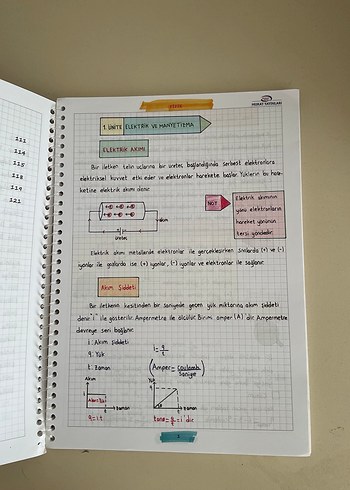 111
114
115
118
119
121
HIDAYET YAYINLARI
1. ÜNİTE ELEKTRİK VE MANYETİZMA
ELEKTRİK AKIMI
Bir iletken telin uçlarına bir üreteç bağlandığında serbest elektronlara
elektriksel kuvvet etki eder ve elektronlar harekete başlar. Yüklerin bu hare-
ketine elektrik akımı denir.
akım
üreteç
NOT
Elektrik akımının
yönü elektronların
hareket yönünün
tersi yöndedir.
Elektrik akımı metallerde elektronlar ile gerçekleşirken sıvılarda (+) ve (-)
iyonlar ile gazlarda ise (+) iyonlar, (-) iyonlar ve elektronlar ile sağlanır.
Akım Şiddeti
Bir iletkenin kesitinden bir saniyede geçen yük miktarına akım şiddeti
denir. "i" ile gösterilir. Ampermetre ile ölçülür. Birimi amper (A)'dir. Ampermetre
devreye seri bağlanır.
i: Akım şiddeti
q: Yük
t: zaman
i = q/t
(Amper = coulomb/saniye)
Akım
i
Alan: Yük
t
zaman
q = i.t
Yük
q
α
t
zaman
tanα = q/t = i'dir